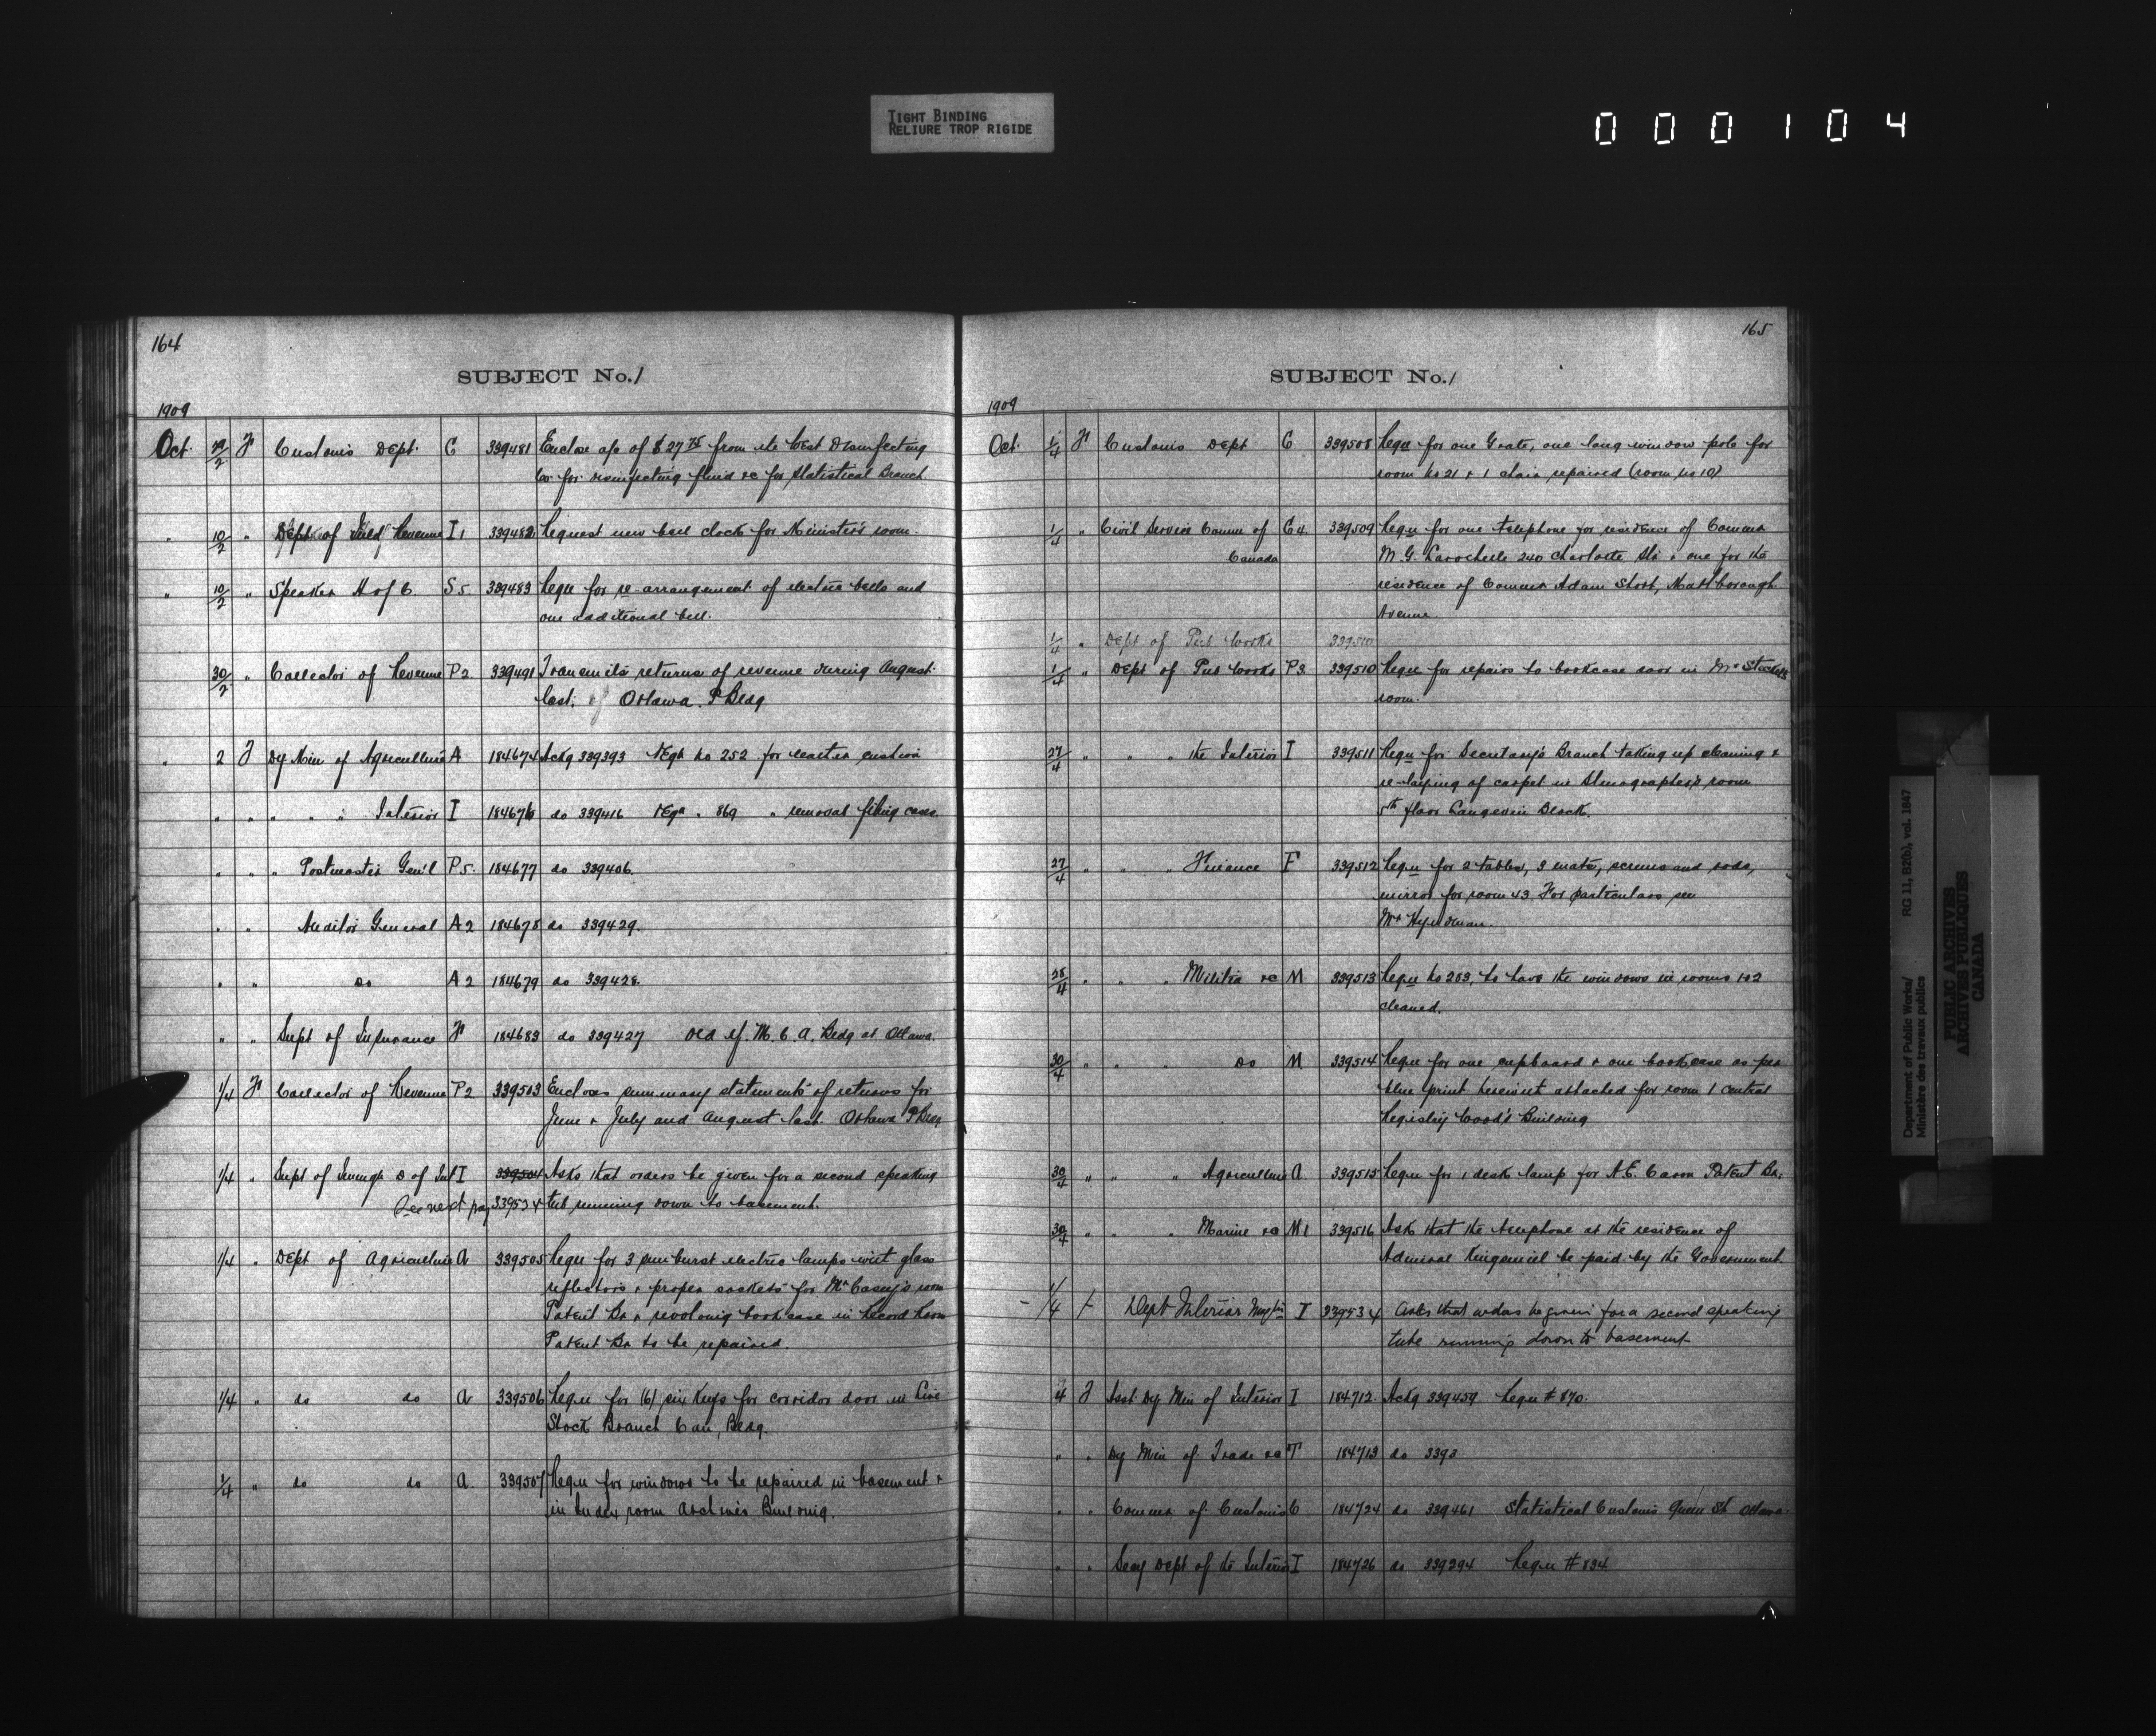 TIGHT BINDING
RELIURE TROP RIGIDE
000104
164
SUBJECT No. 1
1909
Oct. 29/2 F Customs Dept. C 339481 Enclose a/c of $27 75 from the West Disinfecting
Co for disinfecting fluid &c for Statistical Branch.
" 10/2 " Dept of Inld Revenue I1 339482 Request new bell clock for Minister's room.
" 10/2 " Speaker H of C S5 339483 Requ for re-arrangement of electric bells and
one additional bell.
30/2 " Collector of Revenue P2 339491 Transmits returns of revenue during August
last. of Ottawa. P Bldg
" 2 J Dy Min of Agriculture A 184674 Ackg 339393 Reqn No 252 for leather cushion
" " " " " Interior I 184676 do 339416 Reqn " 869 " removal filing cases.
" " " Postmaster Gen'l P5. 184677 do 339406.
" " Auditor General A2 184678 do 339429.
" " do A2 184679 do 339428.
" " Supt of Insurance F 184683 do 339427 Old Y. M. C. A. Bldg at Ottawa.
1/4 F Collector of Revenue P2 339503 Encloses summary statements of returns for
June & July and August last. Ottawa P Bldg
1/4 " Supt of Immign D of Int I 339504 Asks that orders be given for a second speaking
See next page 339534 tub running down to basement.
1/4 " Dept of Agriculture A 339505 Requ for 3 sunburst electric lamps with glass
reflectors & proper sockets for Mr Casey's room
Patent Br & revolving bookcase in Record Room
Patent Br to be repaired.
1/4 " do do A 339506 Requ for (6) six keys for corridor door in Live
Stock Branch Can, Bldg.
1/4 " do do A 339507 Requ for windows to be repaired in basement &
in Index room Archives Building.
165
SUBJECT No. 1
1909
Oct. 1/4 F Customs Dept C 339508 Requ for one Grate, one long window pole for
room No 21 & 1 chair repaired (room No 10)
1/4 " Civil Service Comm of C4. 339509 Requ for one telephone for residence of Commr
Canada M. G. Larochelle 240 Charlotte St & one for the
residence of Commr Adam Short, Marlborough
Avenue.
1/4 " Dept of Pub Works 339510
1/4 " Dept of Pub Works P3. 339510 Requ for repairs to bookcase door in Mr
room.
27/4 " " " the Interior I 339511 Requ for Secretary's Branch taking up cleaning &
re-laying of carpet in Stenographer's room
5th floor Langevin Block.
27/4 " " " Finance F 339512 Requ for 2 tables, 3 mats, screens and rods,
mirror for room 43. For particulars see
Mr
28/4 " " " Militia &c M 339513 Requ No 203, to have the windows in rooms 1 & 2
cleaned.
30/4 " " " do M 339514 Requ for one cupboard & one bookcase as per
blue print herewith attached for room 1 Central
Registry Wood's Building
30/4 " " " Agriculture A 339515 Requ for 1 desk lamp for A. E. Caron Patent Br.
30/4 " " " Marine &c M1 339516 Ask that the telephone at the residence of
Admiral Kingsmill be paid by the Government.
- 1/4 F Dept Interior I 339534 Asks that orders be given for a second speaking
tube running down to basement
4 J Asst Dy Min of Interior I 184712. Ackg 339459 Requ # 870.
" " Dy Min of Trade &c T 184713 do 3393
" " Commr of Customs C 184724 do 339461 Statistical Customs Queen St Ottawa.
" " Secy Dept of the Interior I 184726 do 339394 Requ # 834
Department of Public Works/
Ministère des travaux publics
RG 11, B2(b), vol. 1847
PUBLIC ARCHIVES
ARCHIVES PUBLIQUES
CANADA